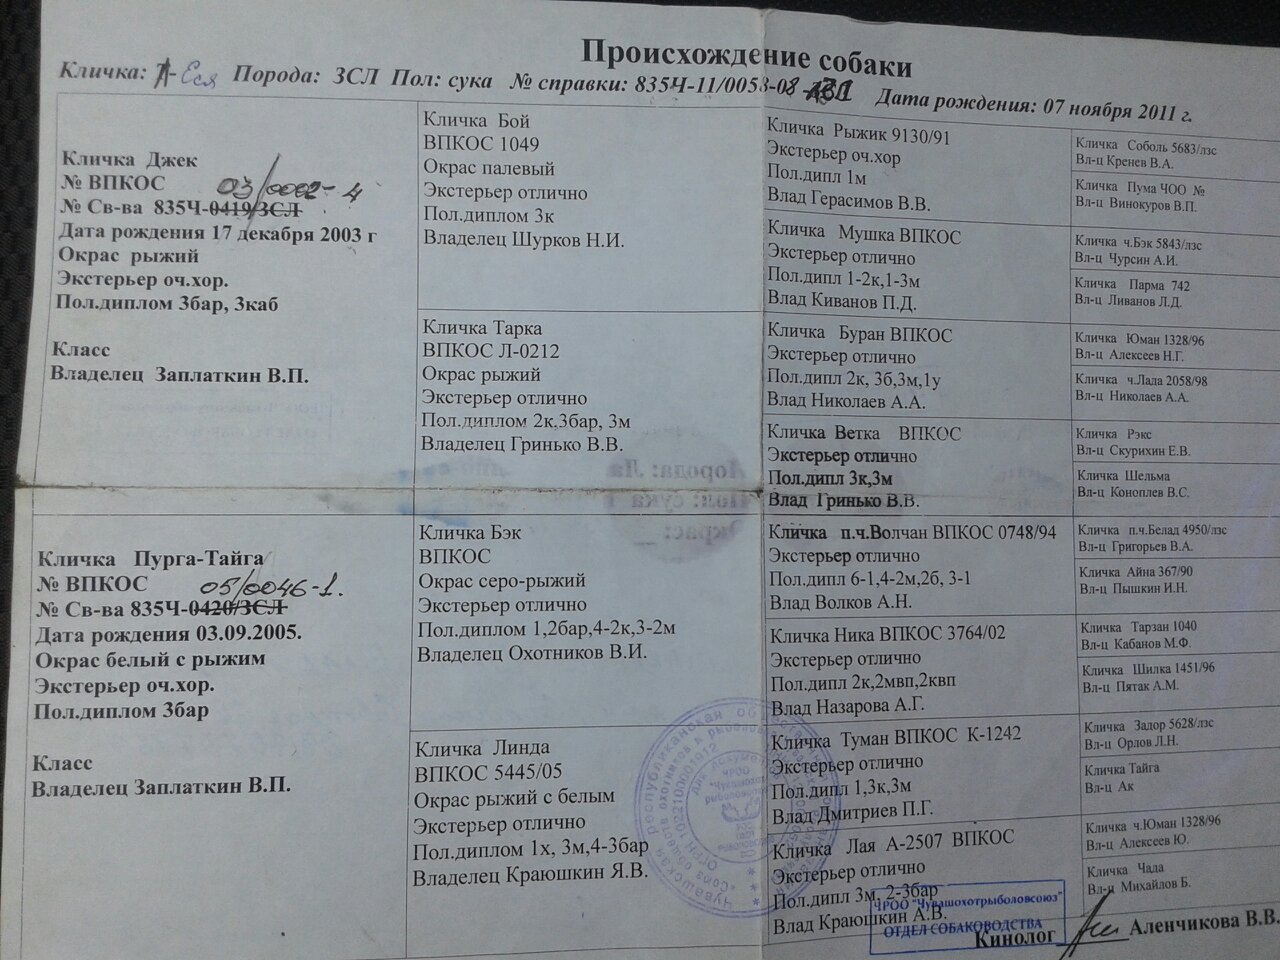 Происхождение собаки
Кличка: А-Еся Порода: ЗСЛ Пол: сука № справки: 835Ч-11/0053-08 Дата рождения: 07 ноября 2011 г.
Кличка Джек
№ ВПКОС 03/0002-4
№ Св-ва 835Ч-0419/ЗСЛ
Дата рождения 17 декабря 2003 г
Окрас рыжий
Экстерьер оч.хор.
Пол.диплом 3бар, 3каб
Класс
Владелец Заплаткин В.П.
Кличка Пурга-Тайга
№ ВПКОС 05/0046-1.
№ Св-ва 835Ч-0420/ЗСЛ
Дата рождения 03.09.2005.
Окрас белый с рыжим
Экстерьер оч.хор.
Пол.диплом 3бар
Класс
Владелец Заплаткин В.П.
Кличка Бой
ВПКОС 1049
Окрас палевый
Экстерьер отлично
Пол.диплом 3к
Владелец Шурков Н.И.
Кличка Тарка
ВПКОС Л-0212
Окрас рыжий
Экстерьер отлично
Пол.диплом 2к,3бар, 3м
Владелец Гринько В.В.
Кличка Бэк
ВПКОС
Окрас серо-рыжий
Экстерьер отлично
Пол.диплом 1,2бар,4-2к,3-2м
Владелец Охотников В.И.
Кличка Линда
ВПКОС 5445/05
Окрас рыжий с белым
Экстерьер отлично
Пол.диплом 1х, 3м,4-3бар
Владелец Краюшкин Я.В.
Кличка Рыжик 9130/91
Экстерьер оч.хор
Пол.дипл 1м
Влад Герасимов В.В.
Кличка Мушка ВПКОС
Экстерьер отлично
Пол.дипл 1-2к,1-3м
Влад Киванов П.Д.
Кличка Буран ВПКОС
Экстерьер отлично
Пол.дипл 2к, 3б,3м,1у
Влад Николаев А.А.
Кличка Ветка ВПКОС
Экстерьер отлично
Пол.дипл 3к,3м
Влад Гринько В.В.
Кличка п.ч.Волчан ВПКОС 0748/94
Экстерьер отлично
Пол.дипл 6-1,4-2м,2б, 3-1
Влад Волков А.Н.
Кличка Ника ВПКОС 3764/02
Экстерьер отлично
Пол.дипл 2к,2мвп,2квп
Влад Назарова А.Г.
Кличка Туман ВПКОС К-1242
Экстерьер отлично
Пол.дипл 1,3к,3м
Влад Дмитриев П.Г.
Кличка Лая А-2507 ВПКОС
Экстерьер отлично
Пол.дипл 3м, 2-3бар
Влад Краюшкин А.В.
Кличка Соболь 5683/лзс
Вл-ц Кренев В.А.
Кличка Пума ЧОО №
Вл-ц Винокуров В.П.
Кличка ч.Бэк 5843/лзс
Вл-ц Чурсин А.И.
Кличка Парма 742
Вл-ц Ливанов Л.Д.
Кличка Юман 1328/96
Вл-ц Алексеев Н.Г.
Кличка ч.Лада 2058/98
Вл-ц Николаев А.А.
Кличка Рэкс
Вл-ц Скурихин Е.В.
Кличка Шельма
Вл-ц Коноплев В.С.
Кличка п.ч.Белад 4950/лзс
Вл-ц Григорьев В.А.
Кличка Айна 367/90
Вл-ц Пышкин И.Н.
Кличка Тарзан 1040
Вл-ц Кабанов М.Ф.
Кличка Шилка 1451/96
Вл-ц Пятак А.М.
Кличка Задор 5628/лзс
Вл-ц Орлов Л.Н.
Кличка Тайга
Вл-ц Ак
Кличка ч.Юман 1328/96
Вл-ц Алексеев Ю.
Кличка Чада
Вл-ц Михайлов Б.
ЧРОО "Чувашохотрыболовсоюз"
ОТДЕЛ СОБАКОВОДСТВА
Кинолог Аленчикова В.В.